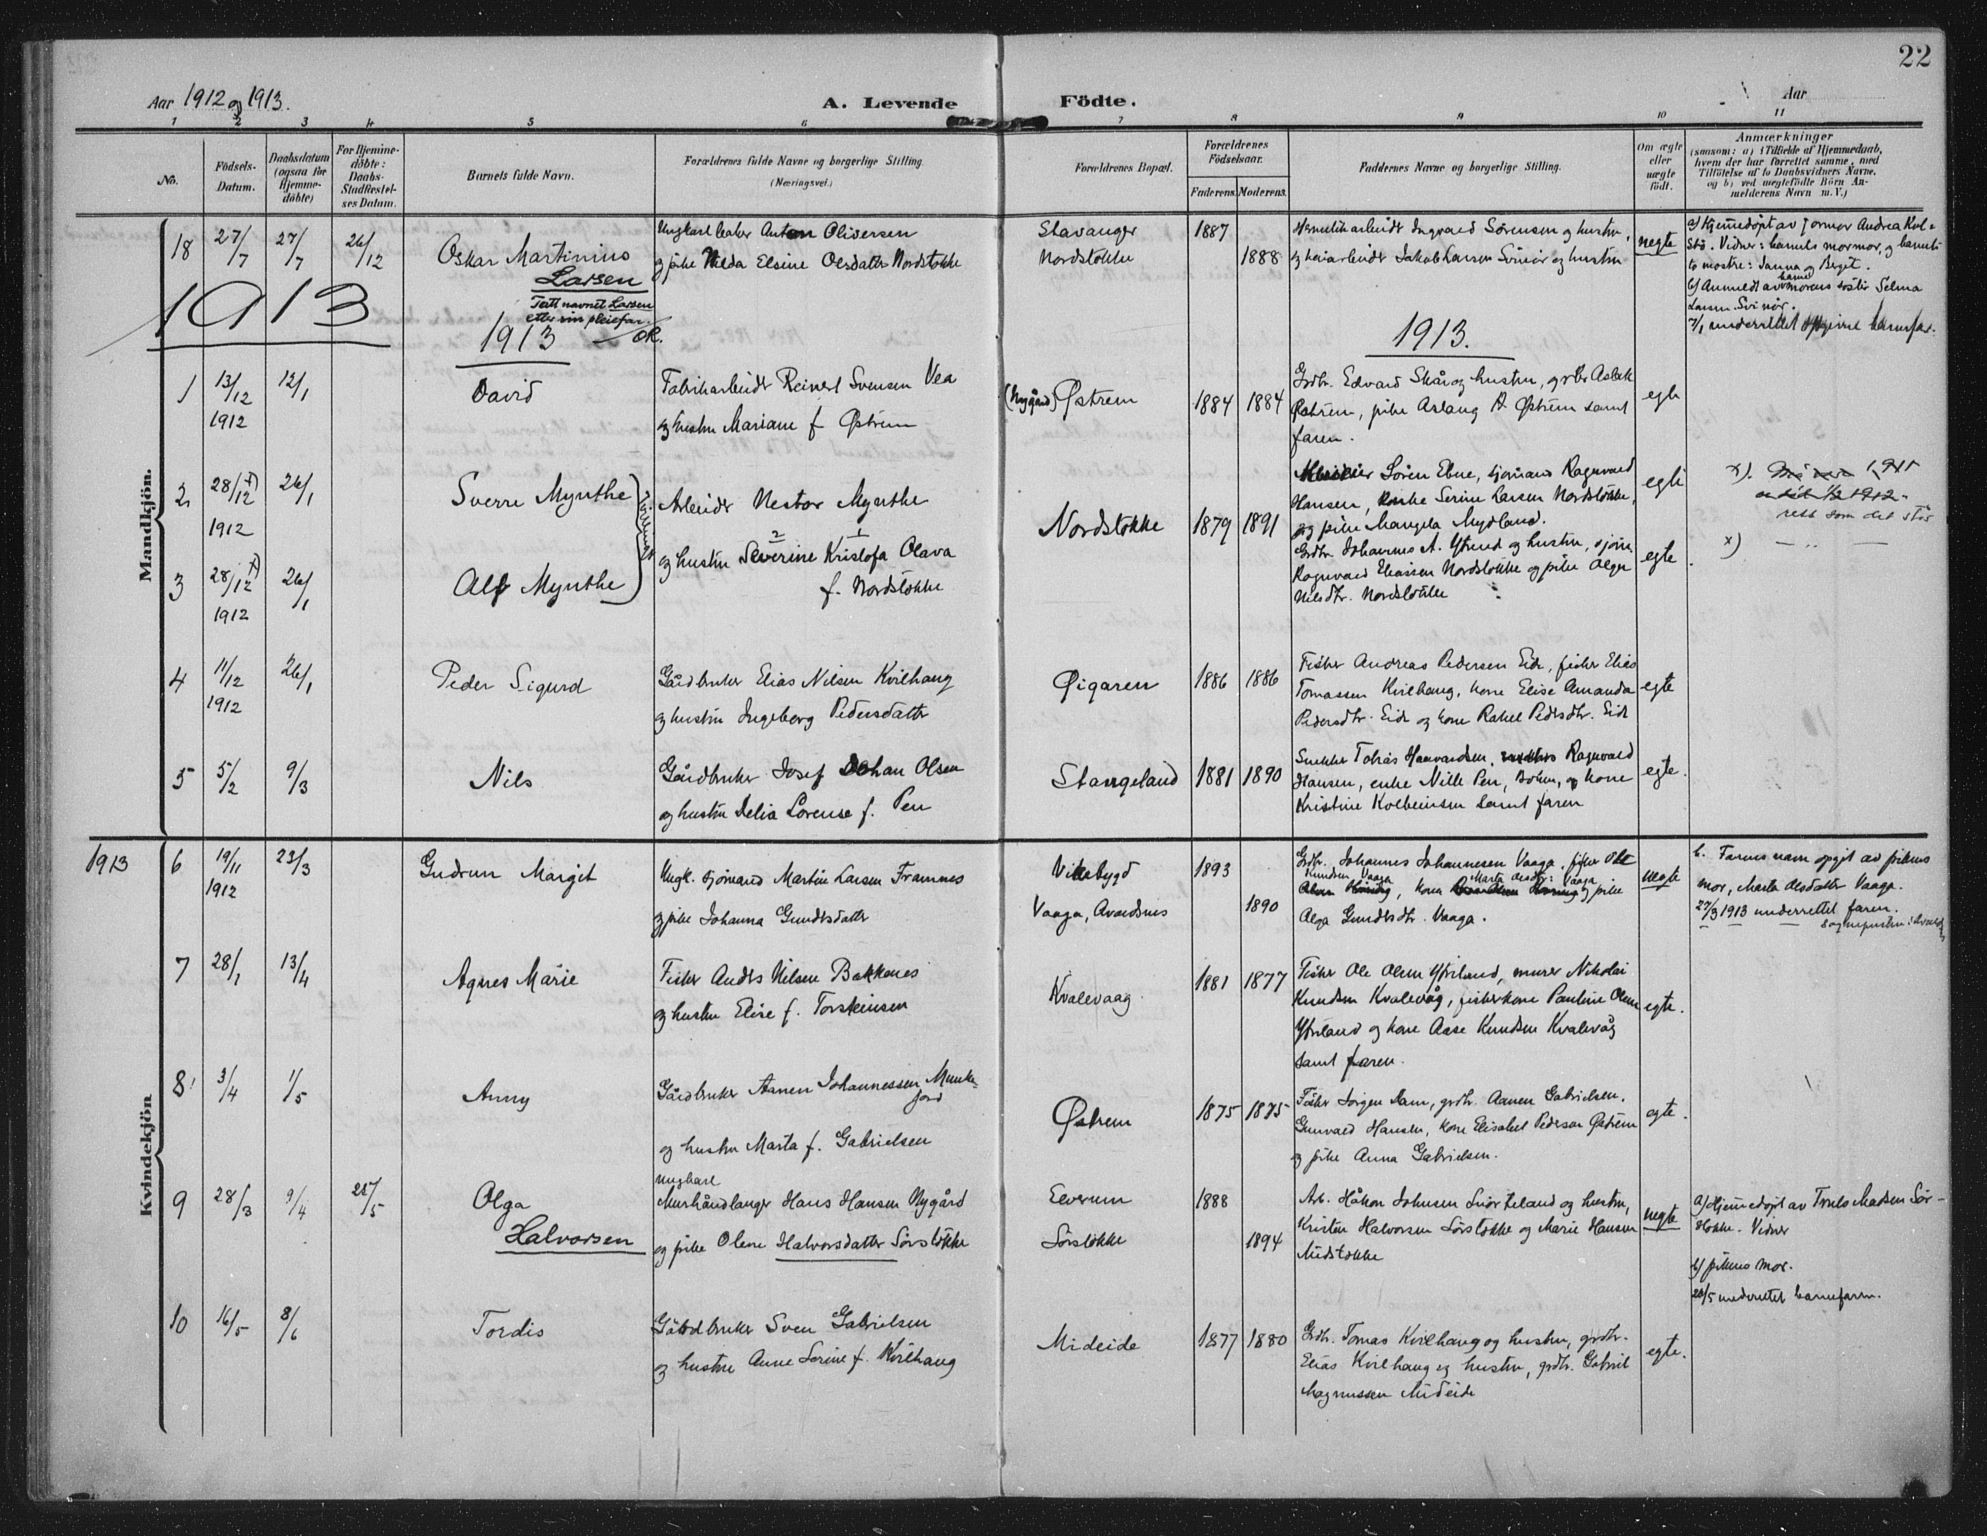 22
Aar 1912 og 1913.
A. Levende Födte.
Aar
1 2 3 4 5 6 7 8 9 10 11
No.
Födsels-
Datum.
Daabsdatum
(ogsaa for
Hjemme-
döbte)
For Hjemme-
döbte:
Daabs-
Stadfæstel-
ses Datum.
Barnets fulde Navn.
Forældrenes fulde Navne og borgerlige Stilling.
(Næringsvei.)
Forældrenes Bopæl.
Forældrenes
Födselsaar.
Faderens. Moderens.
Faddernes Navne og borgerlige Stilling.
Om ægte
eller
uægte
født.
Anmærkninger
(saasom: a) i Tilfælde af Hjemmedaab,
hvem der har forrettet samme, med
Tilföielse af to Daabsvidners Navne,
og b) ved uægtefödte Börn An-
melderens Navn m. V.)
Mandkjön.
18 27/7 27/7 26/12
Oskar Martinius
Larsen
Tatt navnet Larsen
etter sin pleiefar.
OR.
Anton Oliversen
og pike Hilda Elsine Olsdatter Nordstokke
Stavanger 1887
Nordstokke 1888
Hermetikarbeider Ingvald Sørensen og hustru,
og arbeider Jakob Larsen og hustru
uegte
a) Hjemmedøpt av
Vidner: barnets mormor, og barnets
to mostre: Janna og Berget.
b) Anmeldt av barnemorens søster Selma
Larsen Svinör.
underrettet opgivne barnefar.
1913
1913
1913.
1 13/12 1912 12/1
David
Fabrikarbeider Reinert Svensen Vea
og hustru Mariane f. Østrem
(Nygård) Østrem 1884 1884
Grdbr. Edvard Skår og hustru,
Østrem, pike Aslaug Østrem samt
faren.
egte
2 28/12 x) 1912 26/1
Sverre Mynthe
Arbeider Nestor Mynthe
og hustru Severine Kristofa Olava
f. Nordstokke
Nordstokke 1879 1891
Sören Ebne, sjømand Ragnvald
Hansen, enke Serine Larsen Nordstokke,
og pike Mangela Mydland.
egte
x) 1911
rett som det står
3 28/12 x) 1912 26/1
Alf Mynthe
Tvillinger
Grdbr. Johannes A. og hustru, sjöm.
Ragnvald Eliassen Nordstokke og pike Olga
Nilsdtr. Nordstokke
egte
x) — „ —
4 11/12 1912 26/1
Peder Sigurd
Gårdbruker Elias Nilsen Kvilhaug
og hustru Ingeborg Pedersdatter
Øigaren 1886 1886
Fisker Andreas Pedersen Eide, fisker Elias
Tomassen Kvilhaug, kone Elise Amanda
Pedersdtr. Eide og kone Rakel Pedersdtr. Eide
egte
5 5/2 9/3
Nils
Gårdbruker Josef Johan Olsen
og hustru Delia Lorense f. Pen
Stangeland 1881 1890
Snekker Tobias Haavardsen, Ragnvald
Hansen, enke Nille Pen, og kone
Kristine Kolbeinsen samt faren
egte.
1913
Kvindekjön
6 19/11 1912 23/3
Gudrun Margit
Ungk. sjömand Martin Larsen Framnes
og pike Johanna Gundersdatter
Vikebygd 1893
Vaaga, Avaldsnes 1890
Grdbr. Johannes Johannesen Vaaga, fisker Ole
Knudsen Vaaga, kone Marta Olsdtr. Vaaga og pike
Olga Gundersdtr. Vaaga.
uegte
b. Farens navn opgit av pikens
mor, Marta Olsdatter Vaaga.
27/3 1913 underrettet faren.
7 28/1 13/4
Agnes Marie
Fisker Anders Nilsen Bakkenes
og hustru Elise f. Torsteinsen
Kvalevaag 1881 1877
Fisker Ole Olsen Ytreland, murer Nikolai
Knudsen Kvalevåg, fiskerkone Pauline Olsen
Ytreland og kone Aase Knudsen Kvalevåg
samt faren.
egte.
8 3/4 1/5
Anny
Gårdbruker Aanen Johannessen Munke-
jord
og hustru Marta f. Gabrielsen
Østrem 1875 1875
Fisker Jørgen Dam, grdbr. Aanen Gabrielsen,
Gunvald Hansen, kone Elisabet Pederson Østrem
og pike Anna Gabrielsen.
egte.
9 28/3 9/4 25/5
Olga
Halvorsen
ungkarl
Murhåndlanger Hans Hansen Nygård
og pike Olene Halvorsdatter Sörstokke
1888
Sörstokke 1894
Arb. Håkon Johnsen Snörteland og hustru,
Kristen Halvorsen Sörstokke og Marie Hansen
Midstokke
uegte
a) Hjemmedøpt av Truls Madsen Sör-
stokke. Vidner
b) pikens mor.
28/5 underrettet barnefaren.
10 16/5 8/6
Tordis
Gårdbruker Sven Gabrielsen
og hustru Anne Serine f. Kvilhaug
Mideide 1877 1880
Grdbr. Tomas Kvilhaug og hustru, grdbr.
Elias Kvilhaug og hustru, grdbr. Gabriel
Magnussen Mideide
egte.